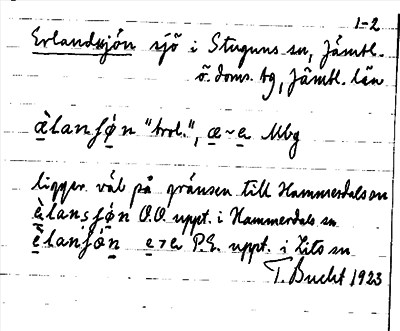 1-2
Erlandsjön sjö i Stuguns sn, Jämtl.
ö. doms. tg, Jämtl. län
æ̀lanʃǿn "trol.", æ ~ e Mbg
ligger väl på gränsen till Hammerdals sn
èlansʃǿn O.O. uppt. i Hammerdals sn
èlanʃǿn e > e P.E. uppt. i Lits sn
T. Bucht 1923